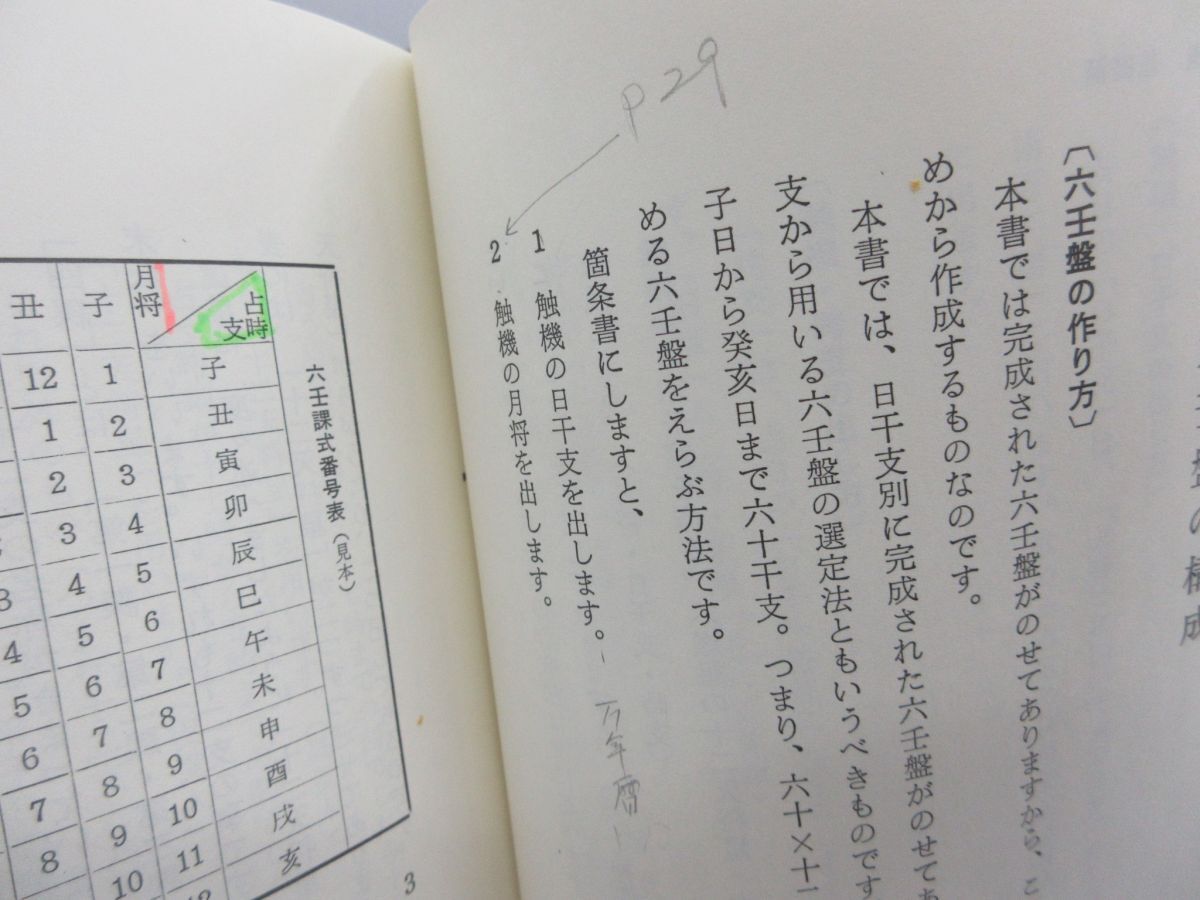 盤の構成
〔六壬盤の作り方〕
本書では完成された六壬盤がのせてありますから、こ
めから作成するものなのです。
本書では、日干支別に完成された六壬盤がのせてあ
支から用いる六壬盤の選定法ともいうべきものです
子日から癸亥日まで六十干支。つまり、六十×十二
める六壬盤をえらぶ方法です。
箇条書にしますと、
1 触機の日干支を出します。 万年暦
2 触機の月将を出します。
P29
六壬課式番号表（見本）
占時支 月将 子 丑
子 1 12
丑 2 1
寅 3 2
卯 4 3
辰 5 4
巳 6 5
午 7 6
未 8 7
申 9 8
酉 10 9
戌 11 10
亥 12
3
4
5
6
7
8
3